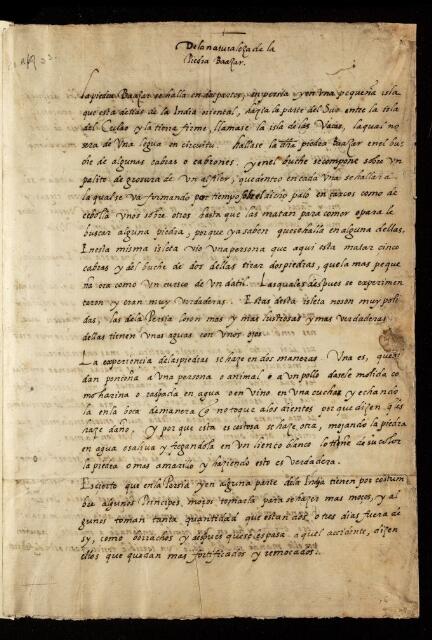 De la naturaleza de la
Piedra Baazar.
La piedra Baazar se halla en dos partes, en persia, y en una pequeña isla
que esta detras de la India oriental, hazia la parte del Sur entre la isla
del Ceilao y la tierra firme, llamase la isla de las Vacas, la qual no
sera de una legua en circuitu. hallase la dha piedra Baazar en el bu
che de algunas cabras o cabrones. y en el buche se compone sobre un
palito de grosura de un alfiler, que dentro en cada una se hallara
la qual se va formando por tiempo sobre el dicho palo en cascos como de
cebolla unos sobre otros hasta que las matan para comer o para le
buscar alguna piedra, porque ya saben que se halla en alguna dellas,
En esta misma isleta vio una persona que aqui esta matar cinco
cabras y del buche de dos dellas tirar dos piedras, que la mas peque
ña era como un cuesco de un datil. Las quales despues se experimen
taron y eran muy verdaderas. Estas desta isleta no son muy poli
das, las de la Persia son mas y mas lustrosas y mas verdaderas
dellas tienen unas aguas con unos ojos.
La experiencia de las piedras se haze en dos maneras. Una es, que si
dan ponçoña a una persona o animal o a un pollo dasele molida co
mo harina o raspada en agua o en vino en una cuchar y echando
la en la boca de manera q no toque a los dientes por que dizen q les
haze daño, y por que esta es costosa se haze otra, mojando la piedra
en agua o saliva y fregandola en un lienço blanco lo tiñe de su color
la piedra o mas amarillo y haziendo esto es verdadera.
Es cierto que en la Persia y en alguna parte de la India tienen por costum
bre algunos Principes, moros tomarla para se hazer mas moços, y al
gunos toman tanta quantidad que estan dos, o tres dias fuera de
sy, como borrachos y despues que se es pasa aquel accidente, dizen
ellos que quedan mas fortificados y remoçados.